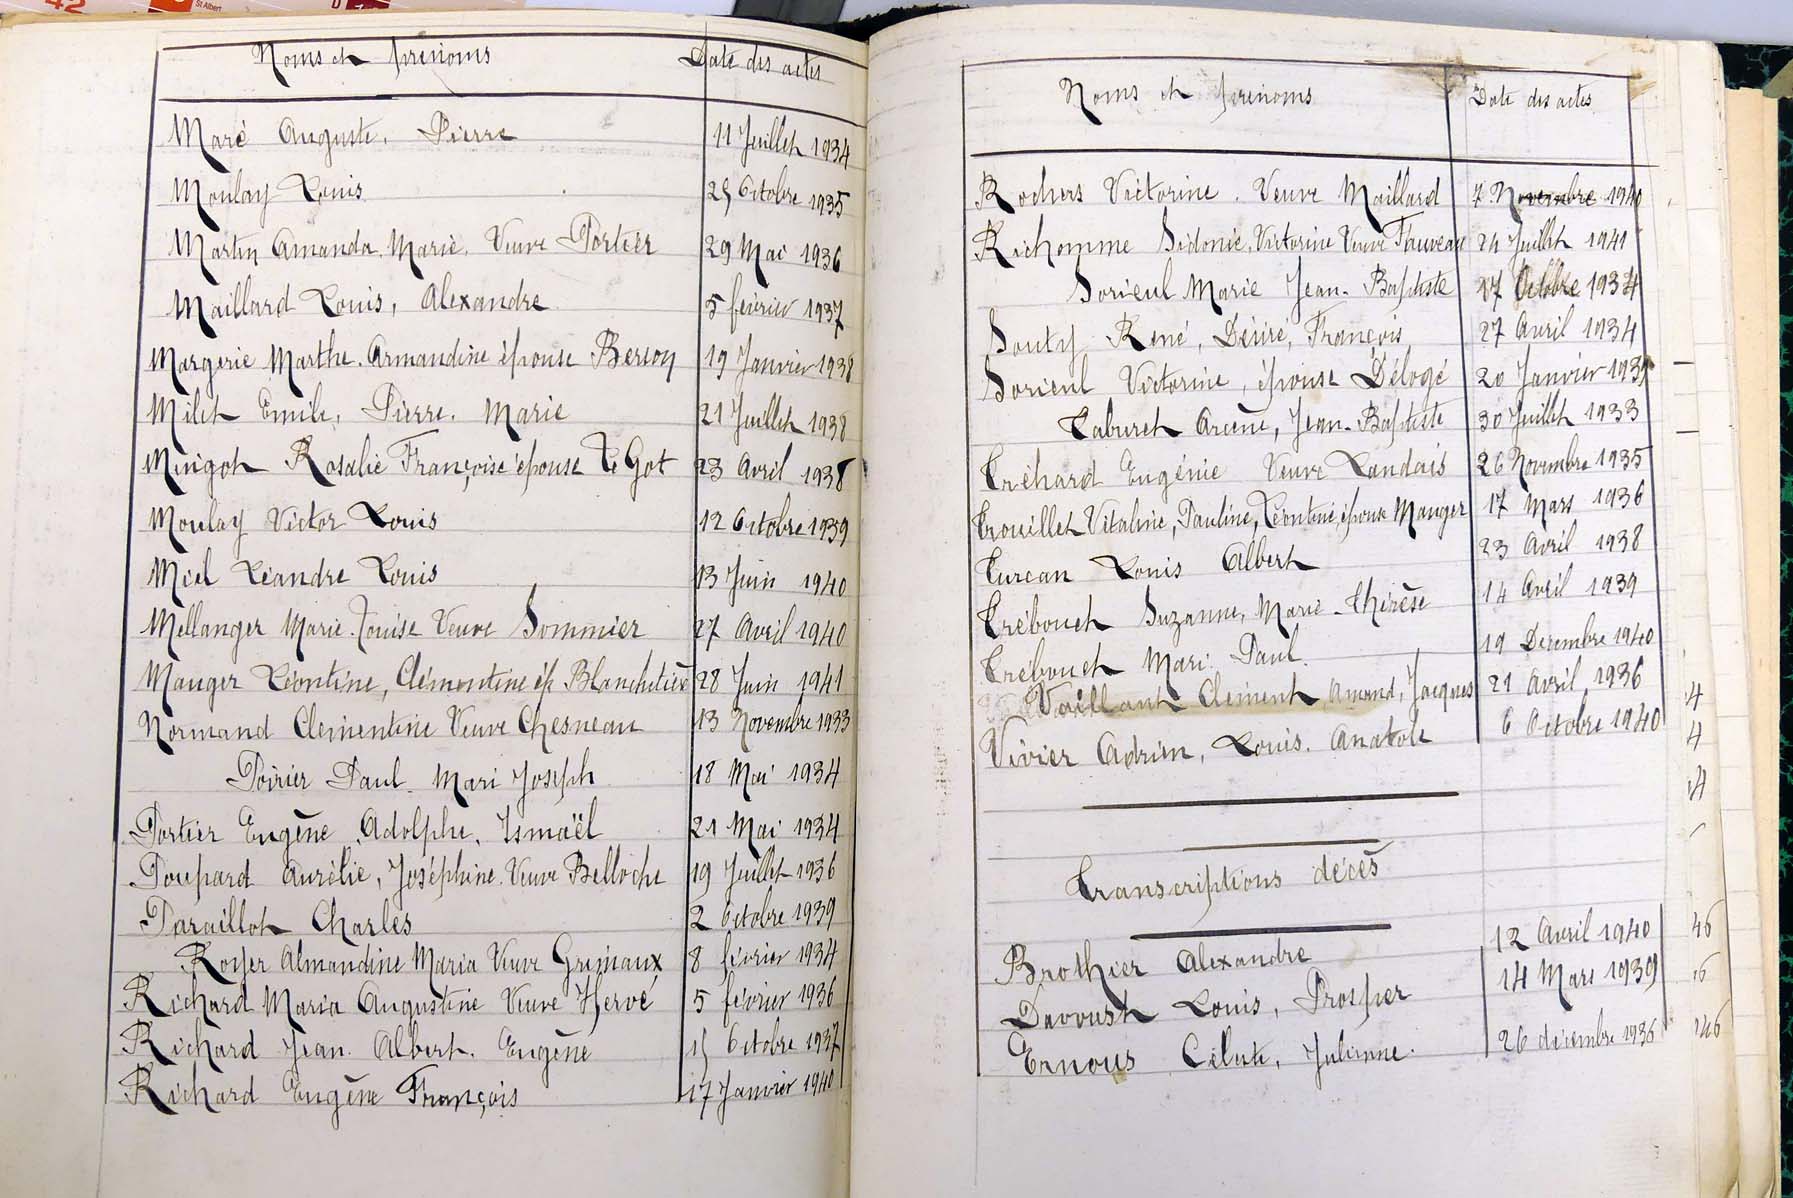 42
St Albert
D
Noms et prénoms Date des actes
Maré Auguste, Pierre 11 Juillet 1934
Moulay Louis 25 Octobre 1935
Martin Amanda, Marie, Veuve Portier 29 Mai 1936
Maillard Louis, Alexandre 5 février 1937
Margerie Marthe, Armandine épouse Berson 19 Janvier 1938
Milet Emile, Pierre, Marie 21 Juillet 1938
Muigot Rosalie Françoise épouse Le Got 23 Avril 1938
Moulay Victor Louis 12 Octobre 1939
Miel Léandre Louis 13 Juin 1940
Mellanger Marie-Louise Veuve Sommier 27 Avril 1940
Manger Léontine, Clémentine ép. Blanchetière 28 Juin 1941
Normand Clementine Veuve Chesneau 13 Novembre 1933
Poirier Paul Mari Joseph 18 Mai 1934
Portier Eugène, Adolphe, Ismaël 21 Mai 1934
Poupard Aurélie, Joséphine, Veuve Belloche 19 Juillet 1936
Paraillot Charles 2 Octobre 1939
Royer Almandine Maria Veuve Grimaux 8 février 1934
Richard Maria Augustine Veuve Hervé 5 février 1936
Richard Jean Albert, Eugène 15 Octobre 1937
Richard Eugène François 17 Janvier 1940
Noms et prénoms Date des actes
Rochers Victorine, Veuve Maillard 7 Novembre 1940
Richomme Sidonie, Victorine Veuve Fauveau 24 Juillet 1941
Sorieul Marie Jean-Baptiste 17 Octobre 1934
Souty René, Désiré, François 27 Avril 1934
Sorieul Victorine, épouse Délogé 20 Janvier 1939
Taburet Arcène, Jean-Baptiste 30 Juillet 1933
Tréhard Eugénie Veuve Landais 26 Novembre 1935
Trouillet Vitaline, Pauline, Léontine, épouse Manger 17 Mars 1936
Turcan Louis Albert 23 Avril 1938
Trébouet Suzanne, Marie-Thérèse 14 Avril 1939
Trébouet Mari Paul 19 Décembre 1940
Vaillant Clément, Amand, Jacques 21 Avril 1936
Vivier Adrien, Louis, Anatole 6 Octobre 1940
Transcriptions décès
Brothier Alexandre 12 Avril 1940
Davoust Louis, Prosper 14 Mars 1939
Ernous Céleste, Julienne 26 décembre 1936
4
4
4
46
6
46